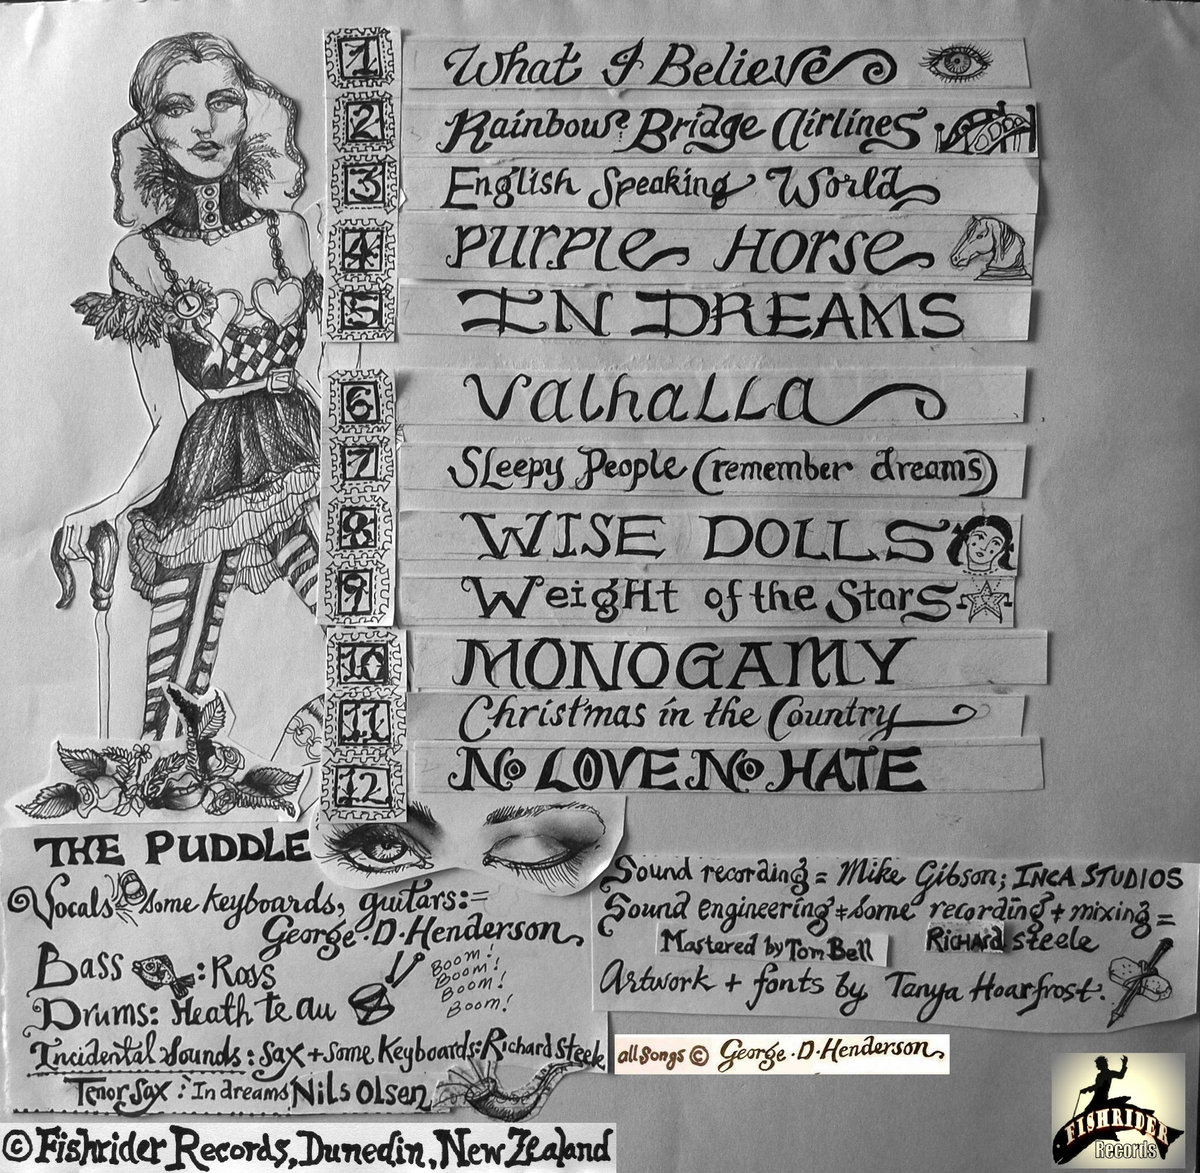 1 What I Believe
2 Rainbow Bridge Airlines
3 English Speaking World
4 Purple Horse
5 IN DREAMS
6 Valhalla
7 Sleepy People (remember dreams)
8 WISE DOLLS
9 Weight of the Stars
10 MONOGAMY
11 Christmas in the Country
12 No LOVE No HATE
THE PUDDLE
Vocals some keyboards, guitars:=
George.D.Henderson
Bass : Ross
Drums: Heath te au
BOOM!
BOOM!
BOOM!
BOOM!
Incidental sounds: sax + some Keyboards: Richard Steele
Tenor Sax: In dreams Nils Olsen
Sound recording = Mike Gibson; INCA STUDIOS
Sound engineering + some recording + mixing =
Mastered by Tom Bell Richard steele
Artwork + fonts by Tanya Hoarfrost.
all songs © George.D.Henderson
© Fishrider Records, Dunedin, New Zealand
FISHRIDER
Records